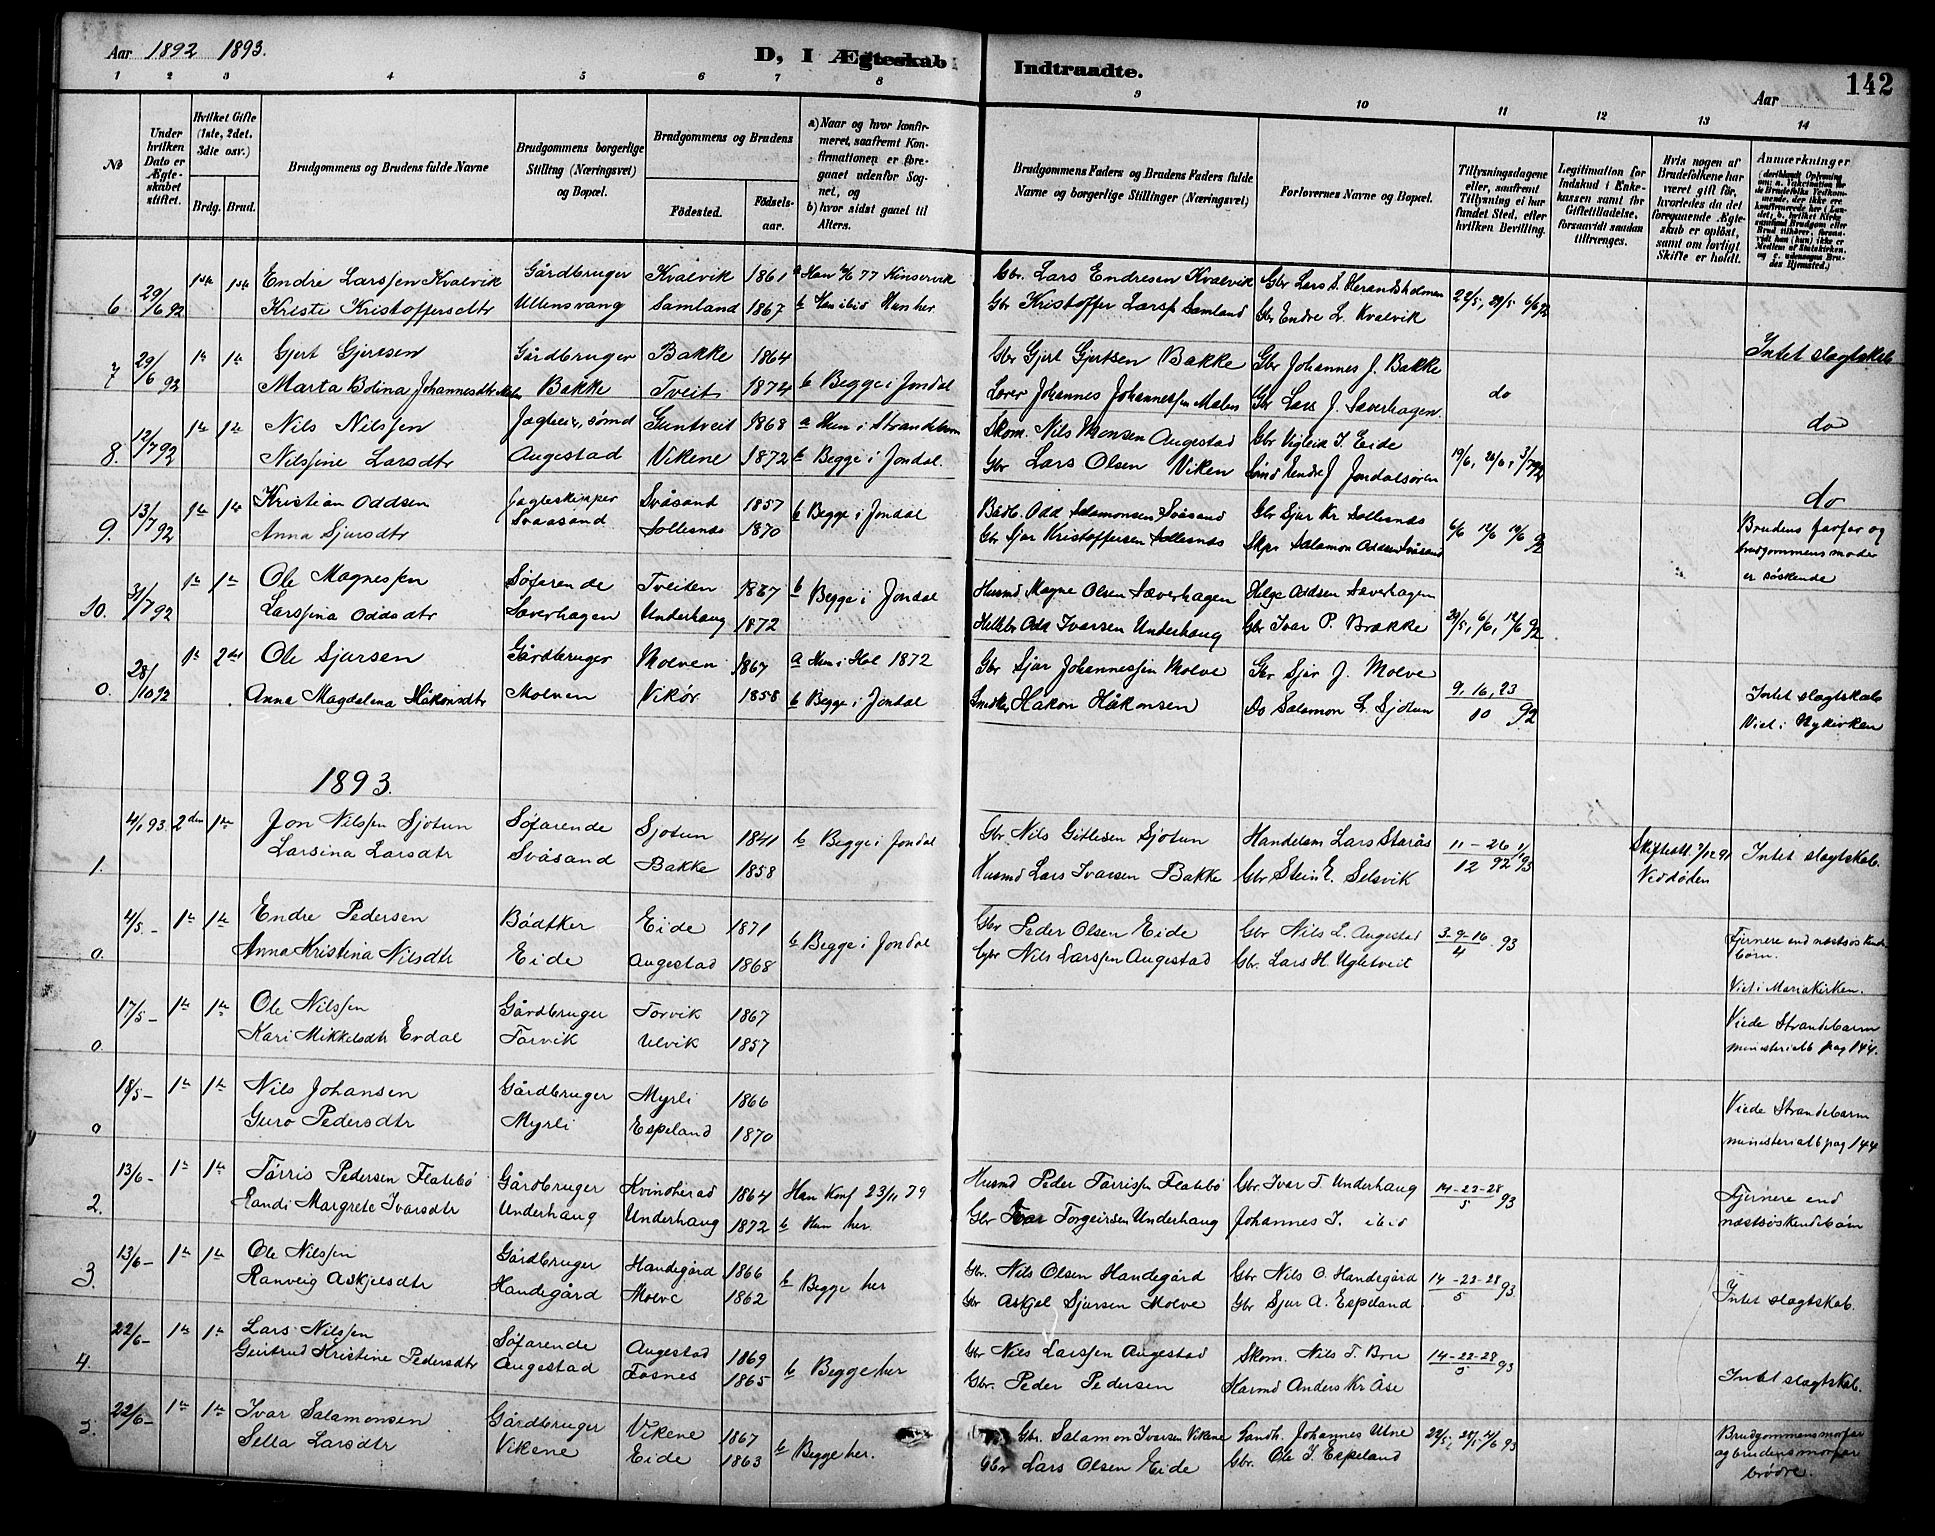 Aar 1892 1893.
D, I Ægteskab Indtraadte.
Aar
142
1 2 3 4 5 6 7 8 9 10 11 12 13 14
No
Under hvilken Dato er Ægteskabet stiftet.
Hvilket Gifte (1ste, 2det, 3die osv.)
Brdg. Brud.
Brudgommens og Brudens fulde Navne
Brudgommens borgerlige Stilling (Næringsvei) og Bopæl.
Brudgommens og Brudens
Fødested. Fødselsaar.
a) Naar og hvor konfirmeret, saafremt Konfirmationen er foregaaet udenfor Sognet, og
b) hvor sidst gaaet til Alters.
Brudgommens Faders og Brudens Faders fulde Navne og borgerlige Stillinger (Næringsvei)
Forlovernes Navne og Bopæl.
Tillysningsdagene eller, saafremt Tillysning ei har fundet Sted, efter hvilken Bevilling.
Legitimation for Indskud i Enkekassen samt for Giftetilladelse, forsaavidt saadan tiltrænges.
Hvis nogen af Brudefolkene har været gift før, hvorledes da det foregaaende Ægteskab er opløst, samt om lovligt Skifte er holdt.
Anmærkninger
6. 29/6 92 1ste 1ste Endre Larssen Kvalvik Gårdbruger Kvalvik 1861 a Han 77 Kinservik Gbr. Lars Endresen Kvalvik Gbr Lars L. Herandsholmen 22/5, 29/5 6/6 92
Kristi Kristoffersdtr Ullensvang Samland 1867 b Han ibid Hun her Gbr Kristoffer Larss. Samland Gbr Endre L. Kvalvik
7 29/6 92 1ste 1ste Gjert Gjertsen Gårdbruger Bakke 1864 Gbr Gjert Gjertsen Bakke Gbr Johannes J. Bakke Intet slagtskab
Marta Bolina Johannesdtr Bakke Tveit 1874 b Begge i Jondal Lærer Johannes Johannessen Gbr Lars J. Sæverhagen do
8. 12/7 92 1ste 1ste Nils Nilssen Augestad 1868 a Han i Strandebarm Skom. Nils Monsen Augestad Gbr Vigleik I. Eide do
Nilssine Larsdtr Augestad Vikene 1872 b Begge i Jondal. Gbr Lars Olsen Viken Jondalsøren 19/6, 26/6, 3/7 92
9. 13/7 92 1ste 1ste Kristian Oddsen Jagteskipper Svåsand 1857 b Begge i Jondal Bådb. Odd Salamonsen Svåsand Gbr Sjur Kr Sollesnæs do
Anna Sjursdtr Svaasand Sollesnæs 1870 Gbr Sjur Kristoffersen Sollesnæs Skpr Salamon Oddsen Svåsand 6/6 12/6 19/6 92 Brudens farfar og
brudgommens moder
er søskende
10. 31/7 92 1ste 1ste Ole Magnessen Søfarende Tveiten 1867 b Begge i Jondal Husmd Magne Olsen Sæverhagen Helge Oddsen Sæverhagen
Larssina Oddsdtr Sæverhagen Underhaug 1872 Odd Ivarsen Underhaug Gbr Ivar P. Brække 30/5, 6/6, 12/6 92
0. 28/10 92 1ste 2det Ole Sjursen Gårdbruger Molven 1867 a Hun i Hol 1872 Gbr Sjur Johannessen Molve Gbr Sjur J. Molve
Anna Magdalena Håkonsdtr Molven Vikør 1858 b Begge i Jondal Håkon Håkonsen Do Salamon L. Sjotun 9, 16, 23/10 92 Intet slagtskab
Viet i Nykirken
1893.
1. 4/1 93 2den 1ste Jon Nilssen Sjotun Søfarende Sjotun 1841 b Begge i Jondal Gbr Nils Gitlesen Sjotun Handelsm Lars Starås 11 - 26/12 92 1/1 93 Skifteatt. 7/12 91 Intet slagtskab.
Larsina Larsdtr Svåsand Bakke 1858 Husmd Lars Ivarsen Bakke Gbr Stein E. Selsvik Ved døden
0. 4/5 - 1ste 1ste Endre Pedersen Bødtker Eide 1871 b Begge i Jondal Gbr Peder Olsen Eide Gbr Nils L. Augestad 3-9-16/4 93 Fjernere end næstsøskende
Anna Kristina Nilsdtr Eide Augestad 1868 Gbr Nils Larssen Augestad Gbr. Lars H. Ugletveit børn.
Viet i Mariakirken.
0. 17/5 - 1ste 1ste Ole Nilssen Gårdbruger Torvik 1867 Viede Strandebarm
Kari Mikkelsdtr Erdal Torvik Ulvik 1857 ministerialb pag 144.
0 18/5 - 1ste 1ste Nils Johansen Gårdbruger Myrli 1866 Viede Strandebarm
Guro Pedersdtr Myrli Espeland 1870 ministerialb pag 144
2. 13/6 - 1ste 1ste Tørris Pedersen Flatebø Gårdbruger Kvindherad 1864 Han Konf 23/11 79 Husmd Peder Tørrissen Flatebø Gbr. Ivar T Underhaug 14-22-28/5 93 Fjernere end
Randi Margrete Ivarsdtr Underhaug Underhaug 1872 b Hun her. Gbr Ivar Torgeirsen Underhaug Johannes I. ibid næstsøskendebørn
3. 13/6 - 1ste 1ste Ole Nilssen Gårdbruger Handegård 1866 b Begge her Gbr. Nils Olsen Handegård Gbr Nils O. Handegård 14-22-28/5 93
Ranveig Askjelsdtr Handegård Molve 1862 Gbr Askjel Sjursen Molve Gbr Sjur A. Espeland Intet slagtskab.
4. 22/6 - 1ste 1ste Lars Nilssen Søfarende Augestad 1869 b Begge her Gbr Nils Larssen Augestad Skom. Nils T. Bru 14-22-28/5 93
Geirtrud Kristine Pedersdtr Augestad Fosnes 1865 Gbr. Peder Pedersen Anders Kr Åse Intet slagtskab.
5. 22/6 - 1ste 1ste Ivar Salamonsen Gårdbruger Vikene 1867 b Begge her. Gbr. Salamon Ivarsen Vikene Landh. Johannes Utne 22/5, 28/5 4/6 93 Brudgommens morfar
Sella Larsdtr Vikene Eide 1863 Gbr Lars Olsen Eide Gbr. Ole I. Espeland og brudens morfar
brødre.